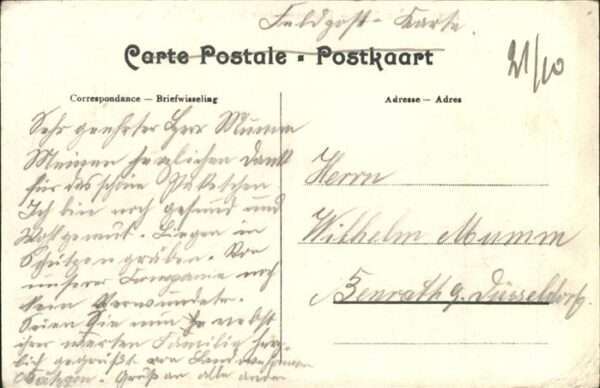 Feldpost-Karte.
Carte Postale - Postkaart
21/10
Correspondance — Briefwisseling
Adresse — Adres
Sehr geehrter Herr Mumm
Meinen herzlichen Dank
für das schöne Paketchen
Ich bin noch gesund und
Wohlgemut. Liegen in
Schützengräben. Von
unserer Compagnie noch
kein Verwundeter.
Seien Sie nun nebst
ihrer werten Familie herz-
lich gegrüßt von
Gruß an alle
Herrn
Wilhelm Mumm
Benrath b. Düsseldorf.